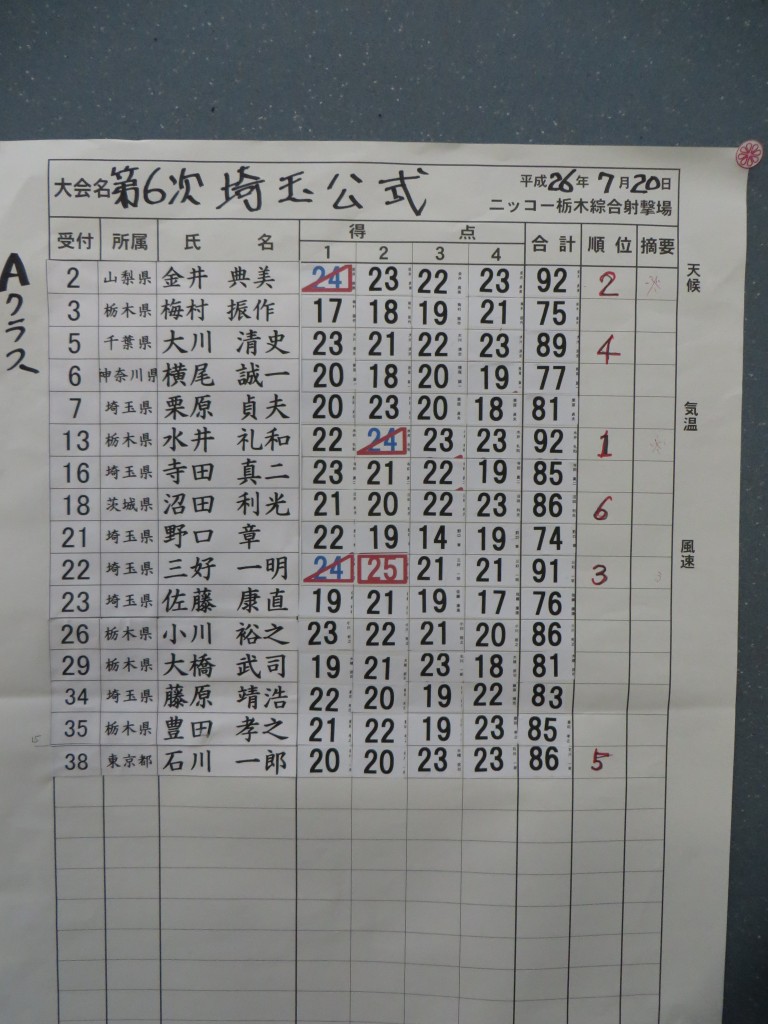 大会名 第6次埼玉公式 平成26年7月20日
ニッコー栃木綜合射撃場
Aクラス
受付 所属 氏名 得点 合計 順位 摘要
1 2 3 4
2 山梨県 金井 典美 24 23 22 23 92 2
3 栃木県 梅村 振作 17 18 19 21 75
5 千葉県 大川 清史 23 21 22 23 89 4
6 神奈川県 横尾 誠一 20 18 20 19 77
7 埼玉県 栗原 貞夫 20 23 20 18 81
13 栃木県 水井 礼和 22 24 23 23 92 1
16 埼玉県 寺田 真二 23 21 22 19 85
18 茨城県 沼田 利光 21 20 22 23 86 6
21 埼玉県 野口 章 22 19 14 19 74
22 埼玉県 三好 一明 24 25 21 21 91 3
23 埼玉県 佐藤 康直 19 21 19 17 76
26 栃木県 小川 裕之 23 22 21 20 86
29 栃木県 大橋 武司 19 21 23 18 81
34 埼玉県 藤原 靖浩 22 20 19 22 83
35 栃木県 豊田 孝之 21 22 19 23 85
38 東京都 石川 一郎 20 20 23 23 86 5
天候
気温
風速